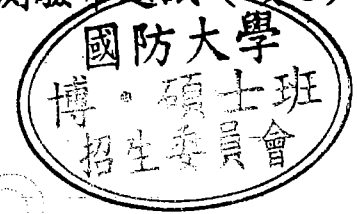 國防大學
博、碩士班
招生委員會